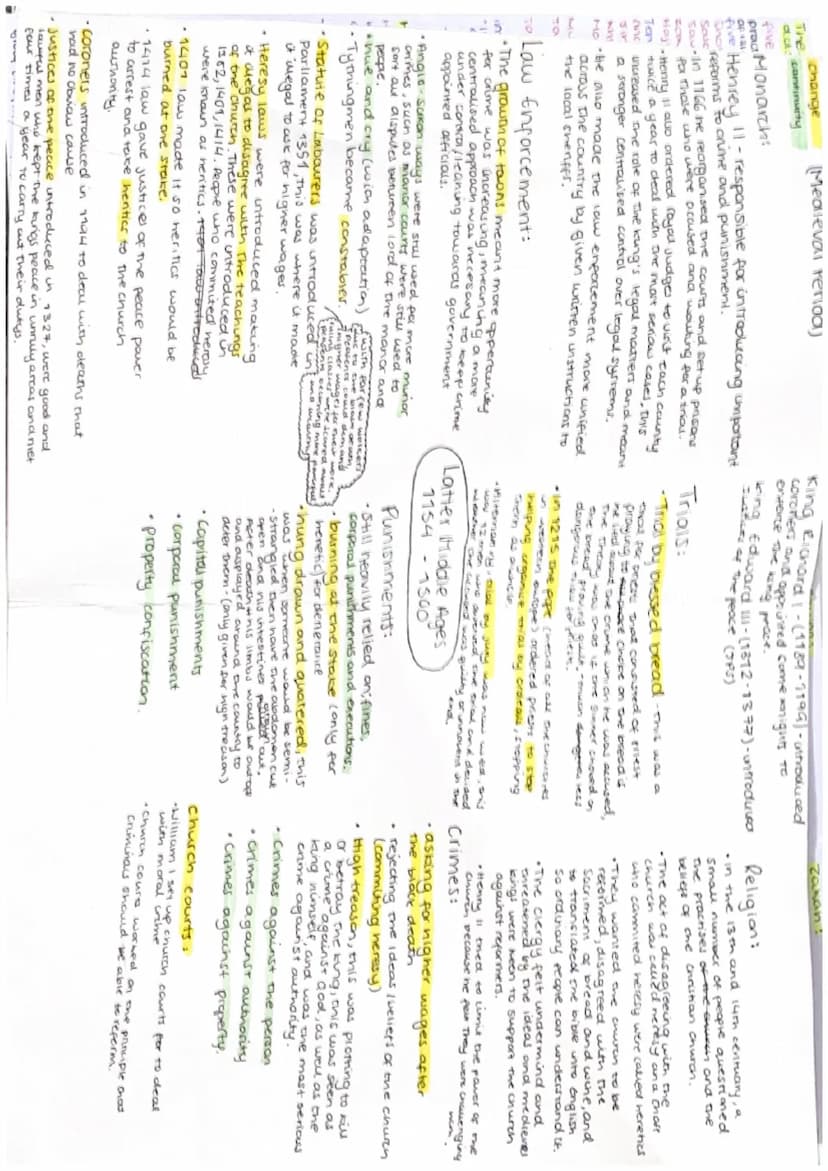 The change
dd: continuity
(Medieval Period)
Monarch:
Henrey II - responsible for introducing important
reforms to crime and punishment.
· In 1166 he reorganised the courts and set up prisons
for those who were accused and waiting for a trial.
· Henry II also ordered royal judges to visit each county
twice a year to deal with the most serious cases, this
increased the role of the king's legal matters and meant
a stronger centralised control over legal systems.
· He also made the law enforcement more unified
across the country by given written instructions to
the local sheriff.
Law enforcement:
· The growth of towns meant more oppertunity
for crime was increasing, meaning a more
centralised approach was necessary to keep crime
under control, leaning towards government
appointed officials.
· Anglo-saxon ways were still used for more minor
crimes such as manor courts were still used to
sort out disputes between lord of the manor and
people.
· Hue and cry (with adaptation)
· Tythingmen became constables.
· Statute of Labourers was introduced in
Parliament 1351, this was where it made
it illegal to ask for higher wages.
(with far few workers
due to the black death,
peasants could demand
higher wages for their work,
ruling classes were scared about
peasants becoming more powerful
and unruly)
· Heresy laws were introduced making
it illegal to disagree with the teachings
of the Church. These were introduced in
1382, 1401, 1414. People who commited heresy
were known as heritics. 1401 law introduced
· 1401 law made it so heritics would be
burned at the stake.
· 1414 law gave justices of the peace power
to arrest and take heritics to the church
authority.
· Coroners introduced in 1194 to deal with deaths that
had no obvious cause
· Justices of the peace introduced in 1327, were good and
lawful men who kept the kings peace in unruly areas and met
four times a year to carry out their dutys.
King Richard I - (1189-1199) - introduced
coroners and appointed some knights to
enforce the king peace.
King Edward III - (1312-1377) - introduced
Justices of the peace (JPs)
Trials:
· Trial by blessed bread - this was a
trial for priests that consisted of priest
praying to choke on the bread if
he lied about the crime which he was accused,
the theory was that if the sinner choked on
the bread proving guilt - much less
dangerous than others.
· In 1215 the pope (head of all the churches
in western europe) ordered priests to stop
helping organise trials by ordeals, stopping
them as punish
· Alternatively trial by jury was now used, this
was 12 men who attended the trial and decided
wether the accused was guilty or innocent in the
end.
Latter Middle Ages
1154 - 1500
Punishments:
· Still heavily relied on, fines,
corporal punishments and executions.
· burning at the stake (only for
heretic) for deterrance
· hung drawn and quatered, this
was when someone would be semi-
strangled then have the abdomen cut
open and his intestines pulled out,
after death his limbs would be cut off
and displayed around the country to
deter them. (only given for high treason)
· Capital punishments
· corporal punishment
· property confiscation.
Zainah:
Religion:
· In the 13th and 14th centuary, a
small number of people questioned
the practises of the church and the
beliefs of the christian church.
· The act of disagreeing with the
church was called heresy and those
who commited heresy were called heretics
· They wanted the church to be
reformed, disagreed with the
Sacrament of bread and wine, and
to translated the bible into English
so ordinary people can understand it.
· The clergy felt undermind and
threatened by the ideas and medieval
kings were keen to support the church
against reformers.
· Henry II tried to limit the power of the
church because he felt they were challenging
him.
Crimes:
· asking for higher wages after
the black death
· rejecting the ideas/beliefs of the church
(commiting heresy)
· High treason, this was plotting to kill
or betray the king, this was seen as
a crime against God, as well as the
king himself, and was the most serious
crime against authority.
· Crimes against the person
· crimes against authority
· Crimes against property.
Church courts:
· William I set up church courts for to deal
with moral crime
· Church courts worked on the principle that
criminals should be able to reform.